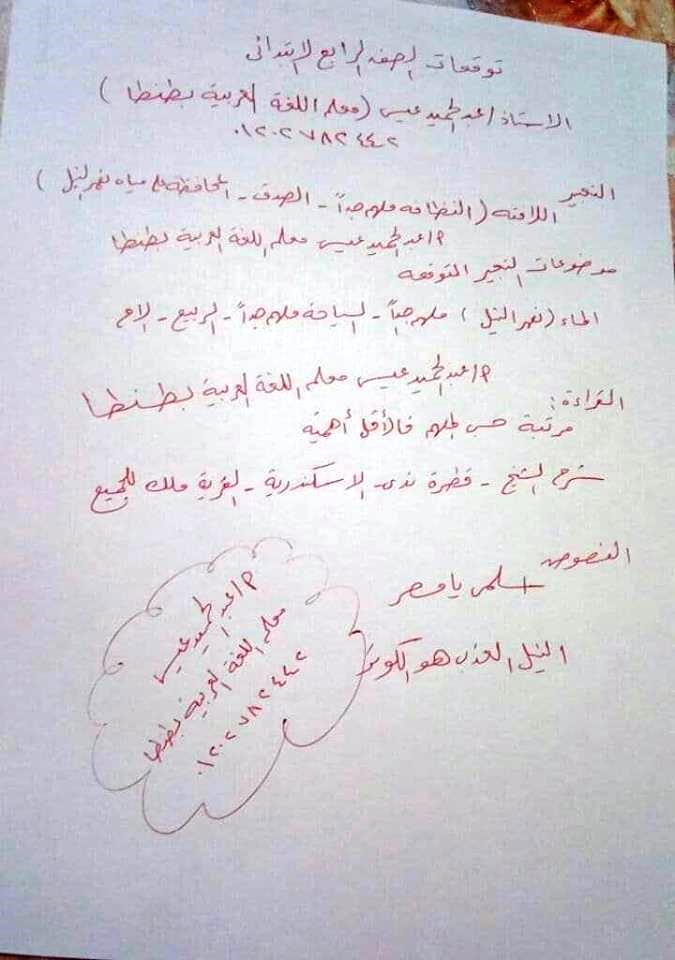 توقعات الصف الرابع الابتدائى
الاستاذ / عبد الحميد عيسى (معلم اللغة العربية بطنطا)
٠١٢٠٢٧٨٢٤٤٢
التعبير
اللافته (النظافه مهم جداً - الصدق - المحافظه على مياه نهر النيل)
م/ عبد الحميد عيسى معلم اللغة العربية بطنطا
موضوعات التعبير المتوقعه
الماء (نهر النيل) مهم جداً - السياحة مهم جداً - الربيع - الام
م/ عبد الحميد عيسى معلم اللغة العربية بطنطا
القراءة:
مرتبة حسب المهم فالأقل أهمية
شرم الشيخ - قطرة ندى - الاسكندرية - القرية ملك للجميع
النصوص
اسلمى يا مصر
النيل العذب هو الكوثر
م/ عبد الحميد عيسى
معلم اللغة العربية بطنطا
٠١٢٠٢٧٨٢٤٤٢